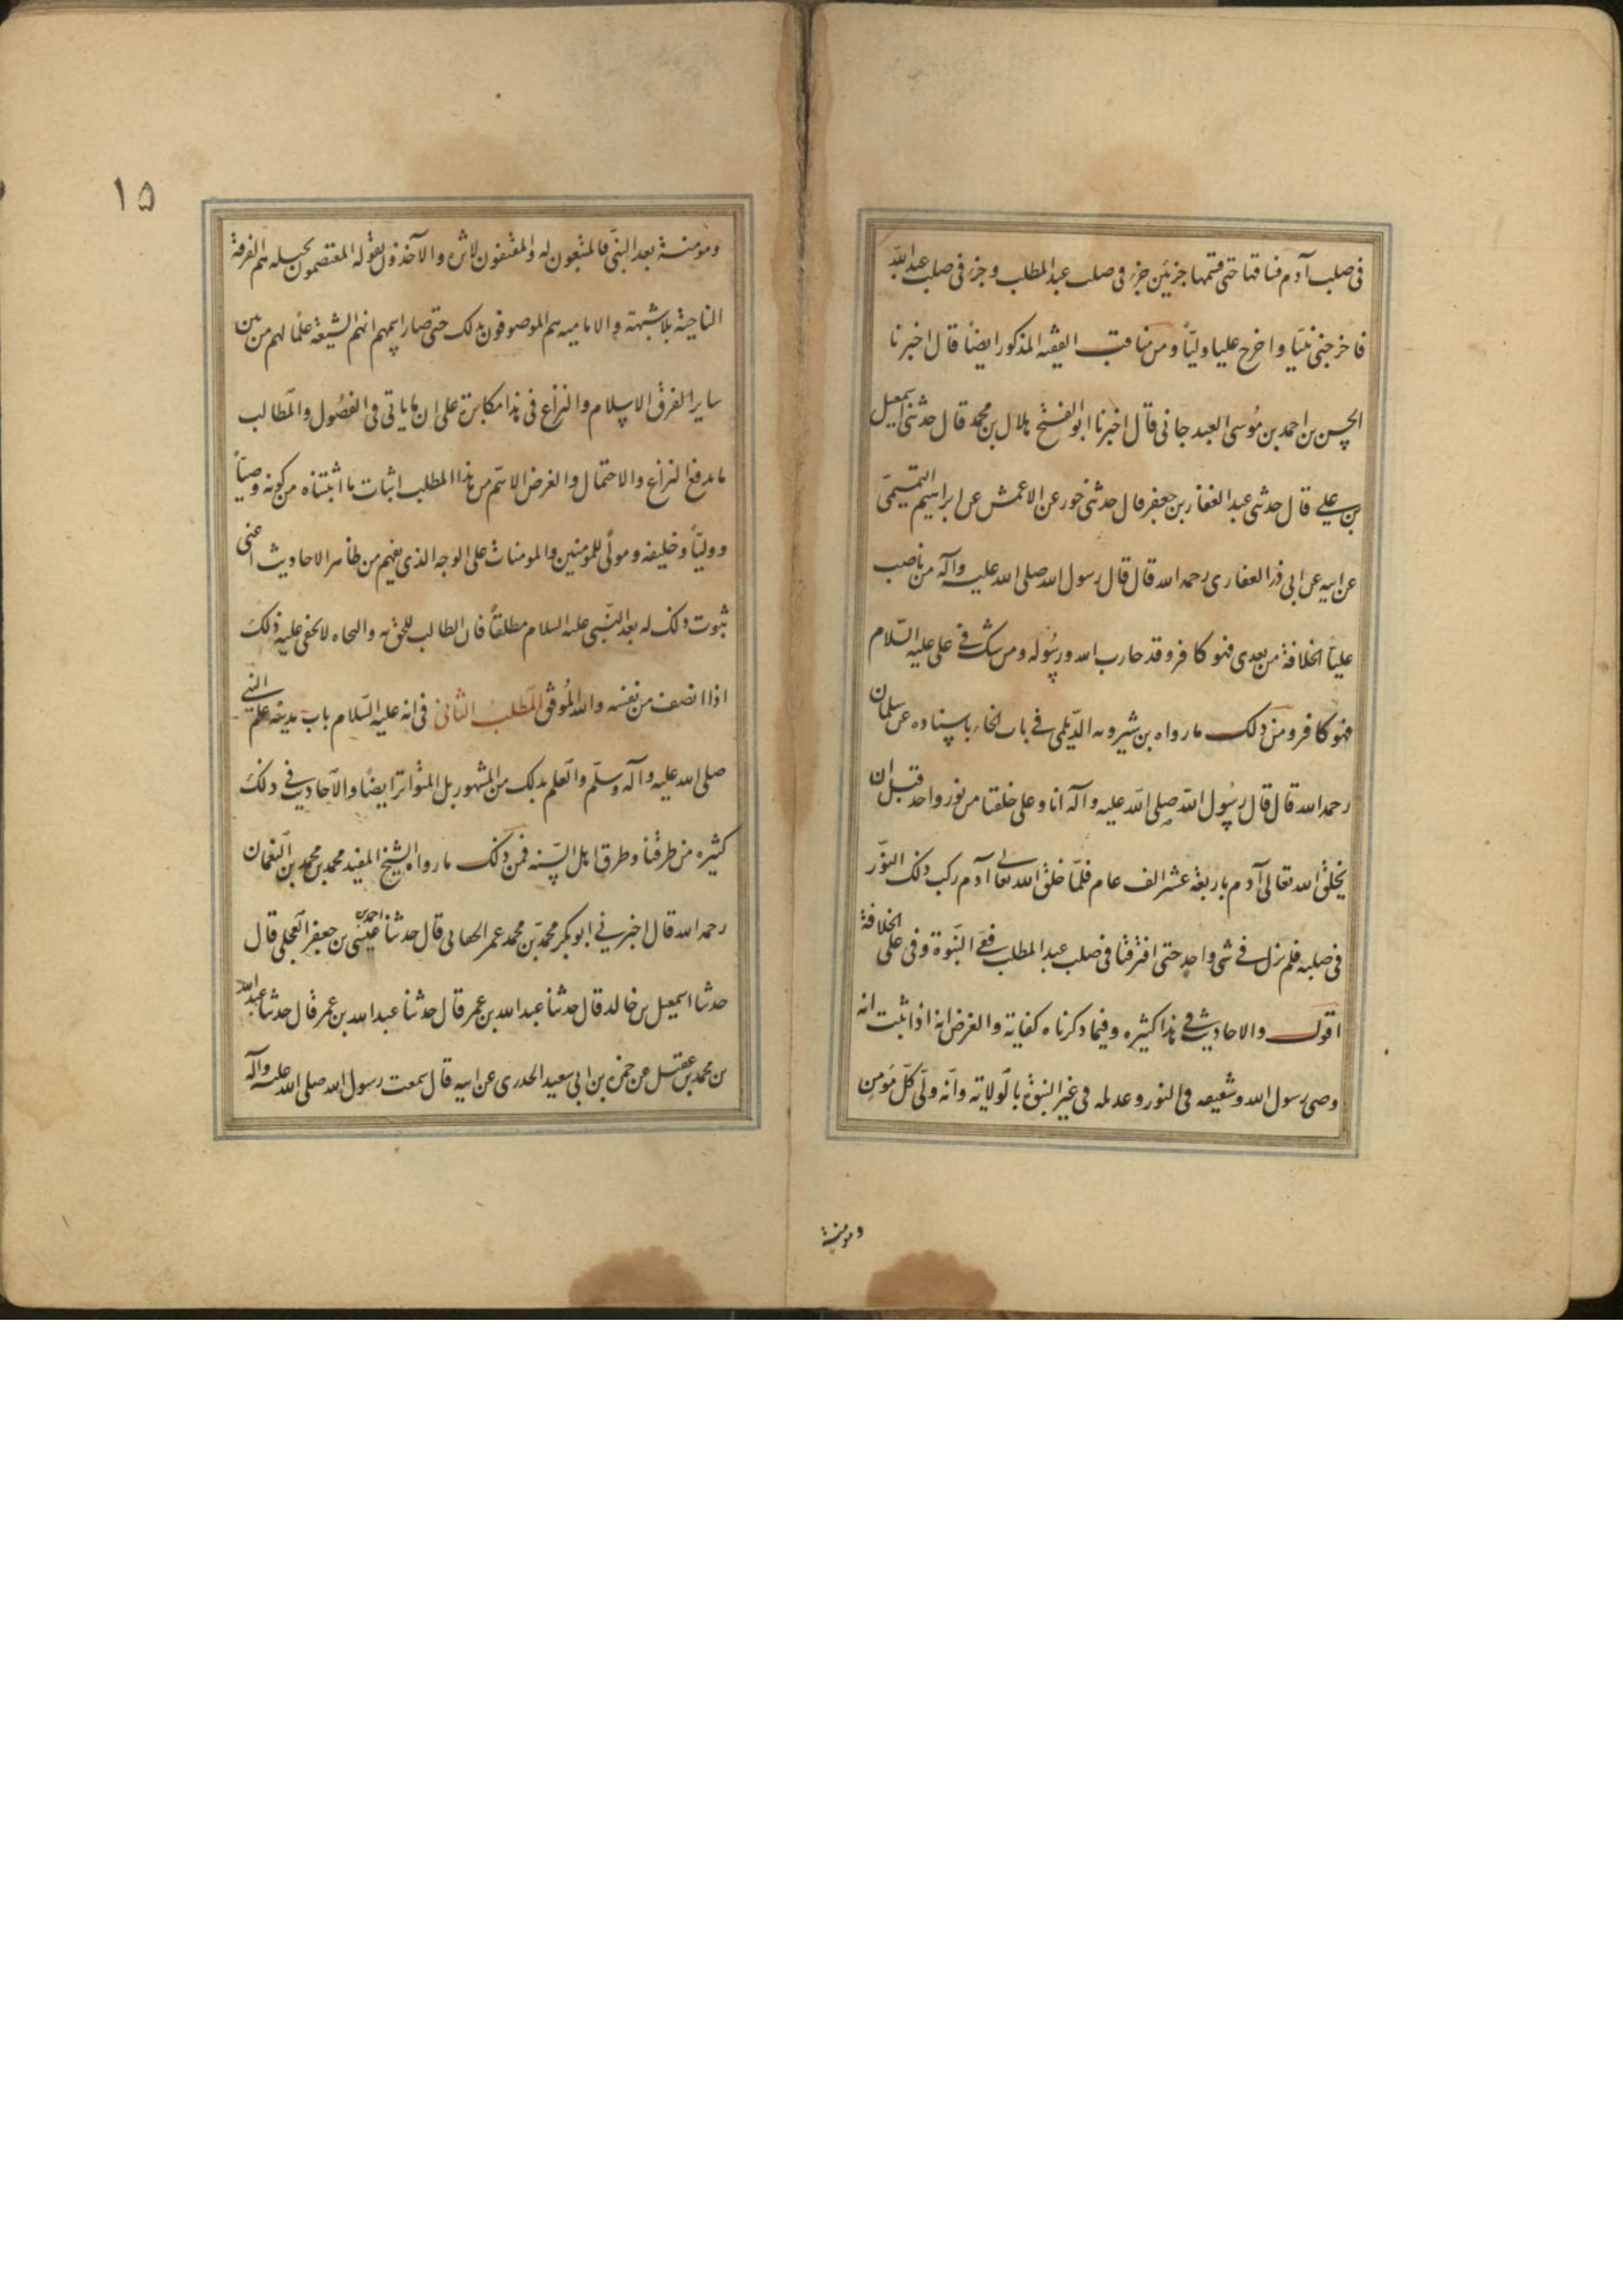 فى صلب آدم فساقها حتى قسمها جزئين جزء فى صلب عبد المطلب وجزء فى صلب عبد الله
فاخرجنى نبيّا واخرج عليا وليّاً ومن مناقب الفقيه المذكور ايضاً قال اخبرنا
الحسن بن احمد بن مُوسى العبدجانى قال اخبرنا ابو الفتح هلال بن محمد قال حدثنى اسمعيل
بن على قال حدثنى عبد الغفار بن جعفر قال حدثنى جرير عن الاعمش عن ابراهيم التميمىّ
عن ابيه عن ابى ذر الغفارى رحمه الله قال قال رسول الله صلى الله عليه وآله من ناصب
علياً الخلافة من بعدى فهو كافر وقد حارب الله ورسُوله ومن شك فى على عليه السّلام
فهو كافر ومن ذلك ما رواه بن شيرويه الدّيلمى فى باب الخاء باسناده عن سلمان
رحمه الله قال قال رسُول الله صلى الله عليه وآله انا وعلى خلقنا من نور واحد قبل ان
يخلق الله تعالى آدم باربعة عشر الف عام فلمّا خلق الله تعالى آدم ركب ذلك النوّر
فى صلبه فلم نزل فى شى واحد حتى افترقنا فى صلب عبد المطلب ففىّ النّبوة وفى على الخلافة
اقول والاحاديث فى هذا كثيره وفيما ذكرناه كفاية والغرض انه اذا ثبت انه
وصى رسول الله وشفيعه فى النور وعديله فى غير النبوة بالولاية وانّه ولى كلّ مؤمن
ومومنة
١٥
ومومنة بعد النبىّ فالمتبعون له والمقتفون لاثره والآخذون بقوله المعتصمون بحبله هم الفرقة
الناجية بلا شبهة والاماميه هم الموصوفون بذلك حتى صار اسمهم انهم الشيعة علماً لهم من بين
ساير الفرق الاسلام والنزاع فى هذا مكابرة على ان ما ياتى فى الفصُول والمطالب
ما يدفع النزاع والاحتمال والغرض الاهم من هذا المطلب اثبات ما اثبتناه من كونه وصيّاً
ووليّاً وخليفه ومولًى للمؤمنين والمومنات على الوجه الذى يفهم من ظاهر الاحاديث اعنى
ثبوت ذلك له بعد النّبى عليه السلام مطلقاً فان الطالب للحق به والنجاه لا يخفى عليه ذلك
اذا انصف من نفسه والله المُوفق المطلب الثانى فى انه عليه السّلام باب مدينة علم النبى
صلى الله عليه وآله وسلّم والعلم بذلك من المشهور بل المتواتر ايضًا والاحاديث فى ذلك
كثيره من طرقنا وطرق اهل السّنه فمن ذلك ما رواه الشيخ المفيد محمد بن محمد بن النعمان
رحمه الله قال اخبرنى ابو بكر محمد بن محمد عمر الجعابى قال حدثنا احمد بن عيسى بن جعفر العجلى قال
حدثنا اسمعيل بن خالد قال حدثنا عبد الله بن عمر قال حدثنا عبد الله بن عمر قال حدثنا عبد الله
بن محمد بن عقيل عن حمزه بن ابى سعيد الخدرى عن ابيه قال سمعت رسول الله صلى الله عليه وآله